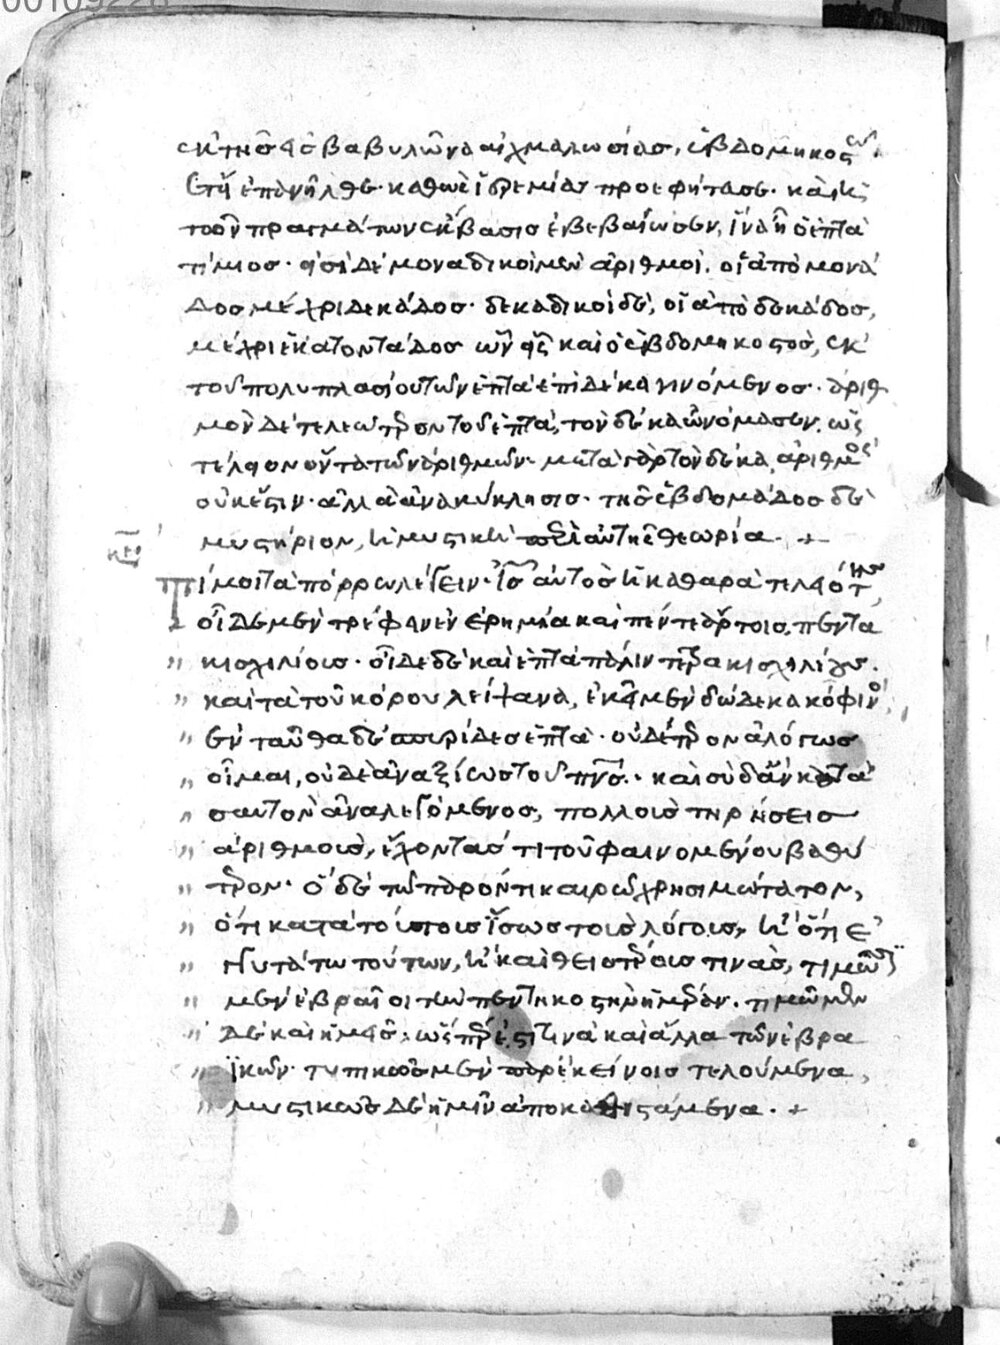 00109228
ἐκ τῆς ἐς βαβυλῶνα αἰχμαλωσίας, ἑβδομηκοστῷ
ἔτει ἐπανῆλθε· καθὼς ἱερεμίας προεφήτευσε· καὶ ἡ
τῶν πραγμάτων ἔκβασις ἐβεβαίωσεν, ἵνα ᾖ ὁ ἑπτὰ
τίμιος· εἰσὶ δὲ μοναδικοὶ μὲν ἀριθμοὶ, οἱ ἀπὸ μονά
δος μέχρι δεκάδος· δεκαδικοὶ δὲ, οἱ ἀπὸ δεκάδος,
μέχρι ἑκατοντάδος ὧν εἷς καὶ ὁ ἑβδομηκοστὸς, ἐκ
τοῦ πολυπλασίου τῶν ἑπτὰ ἐπὶ δέκα γινόμενος· ἀριθ
μὸν δὲ τελεώτερον τοῦ ἑπτὰ, τὸν δέκα ὠνόμασεν, ὡς
τέλειον ὄντα τῶν ἀριθμῶν· μετὰ γὰρ τὸν δέκα, ἀριθμὸς
οὐκ ἔστιν· ἀλλὰ ἀνακύκλησις· τῆς ἑβδομάδος δὲ
μυστήριον, ἡ μυστικὴ περὶ αὐτῆς θεωρία· +
Τί μοι τὰ πόρρω λέγειν· ἰς αὐτὸς ἡ καθαρὰ τελειότης,
οἶδε μὲν τρέφειν ἐν ἐρημία καὶ πέντε ἄρτοις, πεντα
κισχιλίους· οἶδε δὲ καὶ ἑπτὰ πάλιν τετρακισχιλίους·
καὶ τὰ τοῦ κόρου λείψανα, ἐκεῖ μὲν δώδεκα κόφινοι,
ἐνταῦθα δὲ σπυρίδες ἑπτὰ· οὐδέτερον ἀλόγως
οἶμαι, οὐδὲ ἀναξίως τοῦ πνς· καὶ σὺ δ' ἂν κατὰ
σαυτὸν ἀναλεγόμενος, πολλοὺς τηρήσεις
ἀριθμοὺς, ἔχοντας τι τοῦ φαινομένου βαθύ
τερον· ὃ δὲ τῶ παρόντι καιρῶ χρησιμώτατον,
ὅτι κατὰ τούτους ἴσως τοὺς λόγους, ἢ ὅτι ἐ
γγυτάτω τούτων, ἢ καὶ θειοτέρους τινὰς, τιμῶσι
μὲν ἑβραῖοι τὴν πεντηκοστὴν ἡμέραν· τιμῶμεν
δὲ καὶ ἡμεῖς· ὥσπερ ἐστί τινα καὶ ἄλλα τῶν ἑβρα
ϊκῶν· τυπικῶς μὲν παρ' ἐκείνοις τελούμενα,
μυστικῶς δὲ ἡμῖν ἀποκαθιστάμενα· +